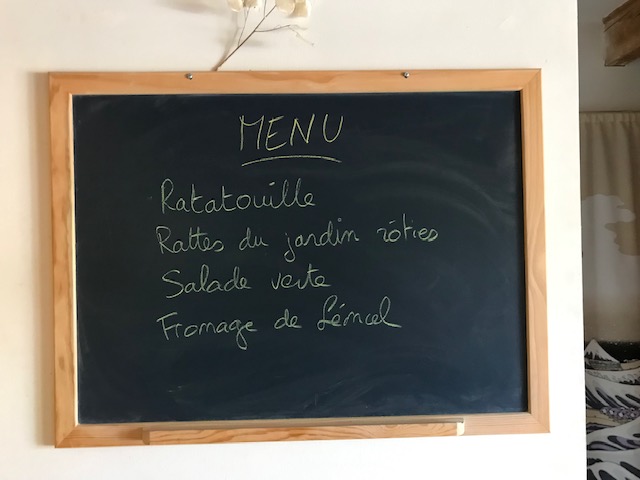 MENU
Ratatouille
Rattes du jardin rôties
Salade verte
Fromage de